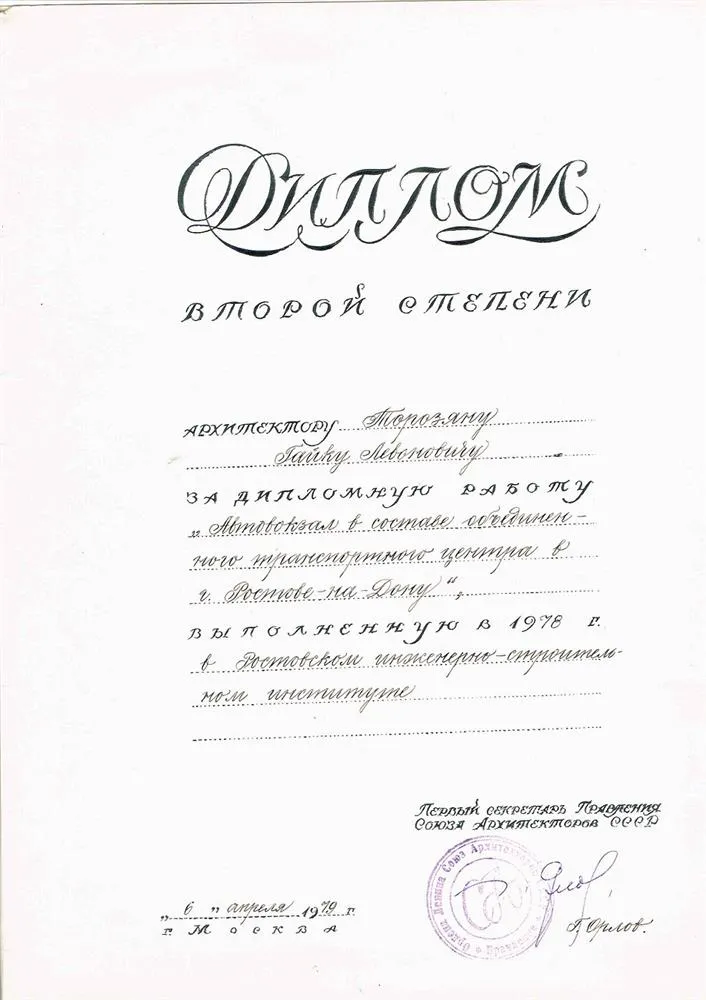 Диплом
второй степени
архитектору Торозяну
Гайку Левоновичу
за дипломную работу
„Автовокзал в составе объединен-
ного транспортного центра в
г. Ростове-на-Дону“,
выполненную в 1978 г.
в Ростовском инженерно-строитель-
ном институте
Первый секретарь Правления
Союза Архитекторов СССР
Ордена Ленина Союз Архитекторов
Правление
„6„ апреля 1979 г.
г. Москва
Г. Орлов.